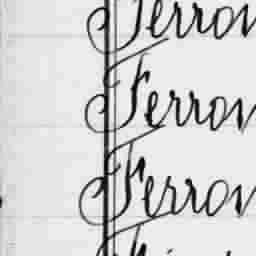 Ferrov
Ferrov
Ferrov